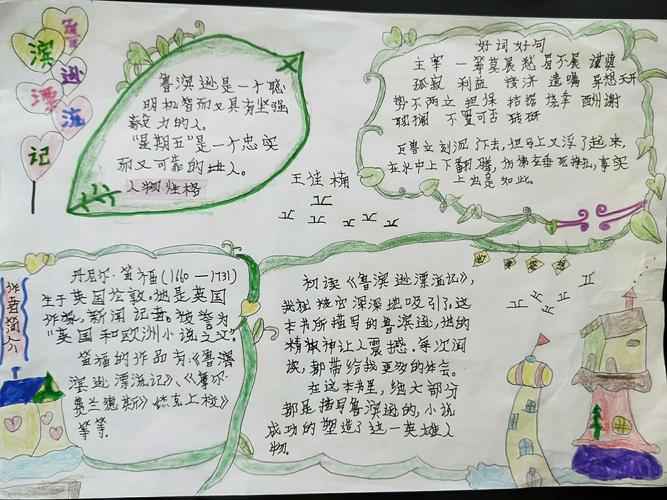 鲁滨逊漂流记
鲁滨逊是一个聪
明机智而又具有坚强
毅力的人。
"星期五"是一个忠实
而又可靠的土人。
人物性格
好词好句
主宰 一筹莫展
孤寂 利益 接济 遗嘱 异想天开
势不两立 担保 酬谢
不置可否
瓦普立刻沉了下去,但马上又浮了起来,
在水中上下翻腾,仿佛在垂死挣扎,事实
上也是如此。
王佳楠
作者简介
丹尼尔·笛福(1660—1731)
生于英国伦敦。他是英国
作家,新闻记者。被誉为
"英国和欧洲小说之父"。
笛福的作品有:《鲁滨
滨逊漂流记》、《摩尔·
弗兰德斯》《杰克上校》
等等。
初读《鲁滨逊漂流记》,
我就被它深深地吸引了。这
本书所描写的鲁滨逊,他的
精神让人震撼。每次阅
读,都带给我更多的体会。
在这本书里,绝大部分
都是描写鲁滨逊的,小说
成功的塑造了这一英雄人
物。